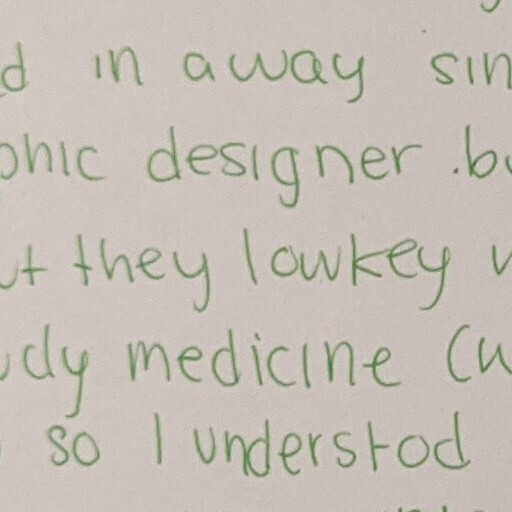 d in away sin
phic designer .bu
ut they lowkey w
udy medicine (w
so I understod